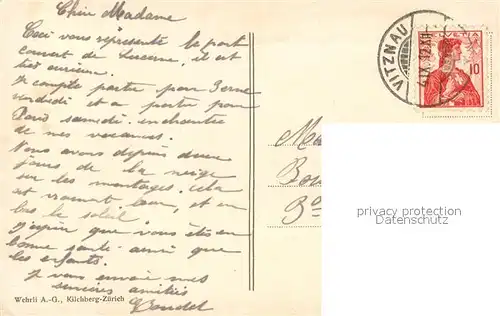 Chère Madame
Ceci vous représente le pont
couvert de Lucerne, il est
très curieux.
Je compte partir pour Berne
vendredi et a partir pour
Paris samedi. enchantée
de mes vacances.
Nous avons depuis deux
jours de la neige
sur les montagnes. cela
est vraiment beau, et en
bas le soleil
J'espère que vous êtes en
bonne santé ainsi que
les enfants.
Je vous envoie mes
sincères amitiés
Wehrli A.-G., Kilchberg-Zürich
VITZNAU
HELVETIA
10
Ma
privacy protection
Datenschutz